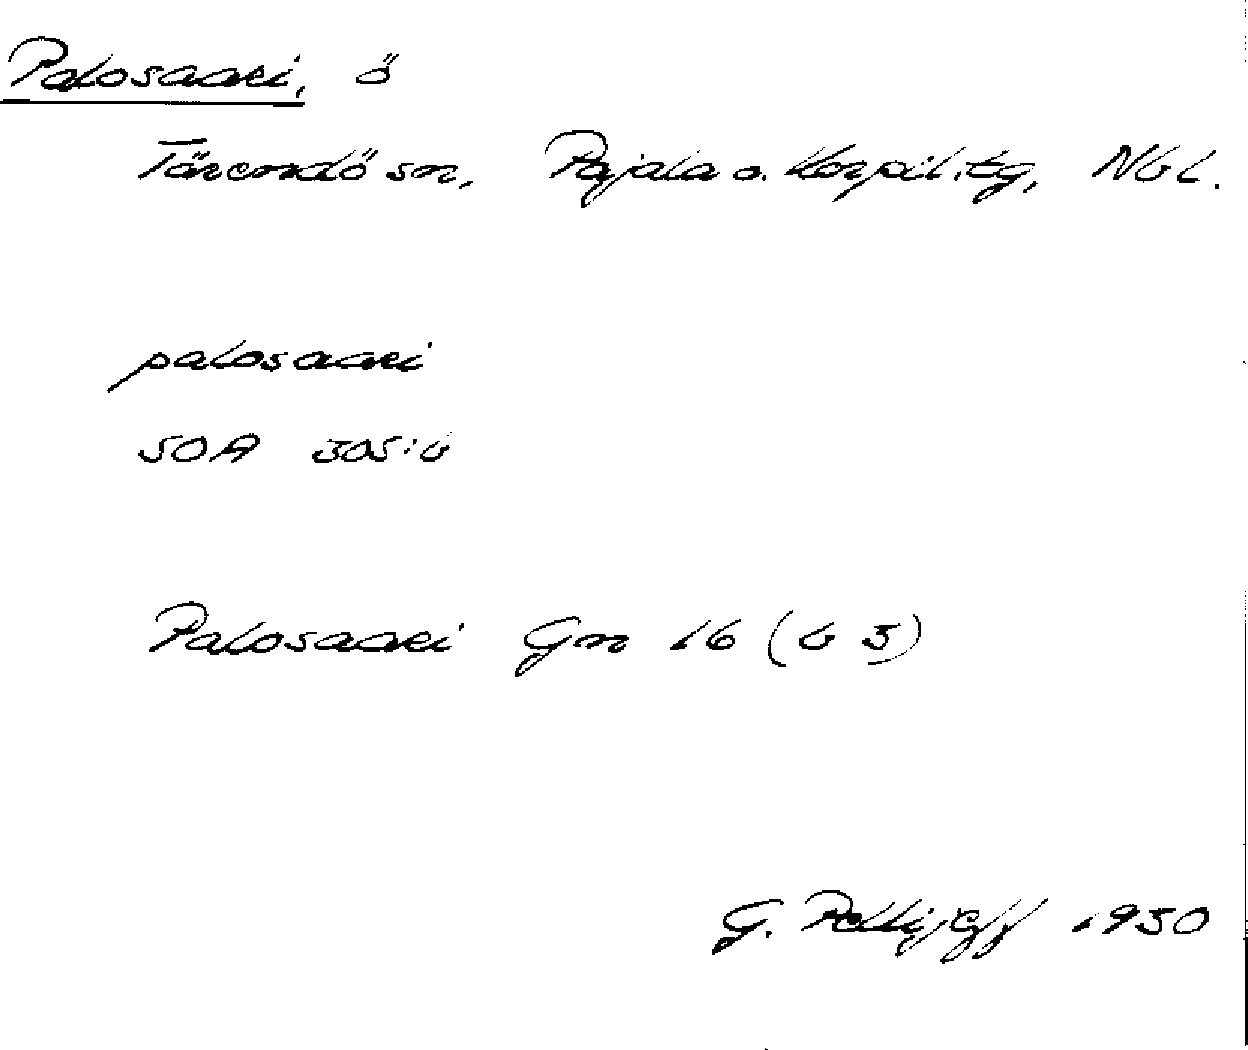 Palosaari, ö
Tärendö sn, Pajala o. Korpil. tg, Nbl.
palosaari
SOA 305:6
Palosaari Gm 16 (6 3)
G. Pellijeff 1950